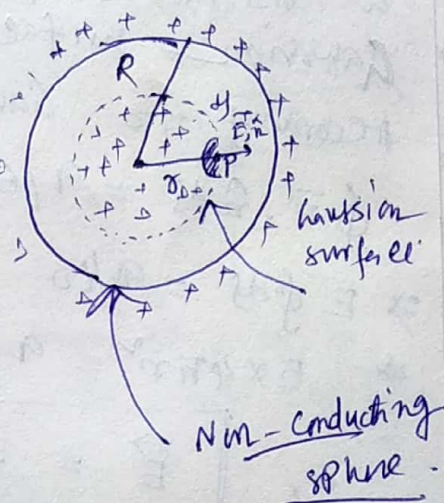 R
P
Gaussion
surface
Non-Conducting
sphere.